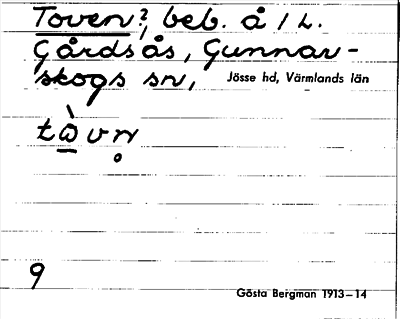 Toven?, beb. å 1 L.
Gårdsås, Gunnar-
skogs sn, Jösse hd, Värmlands län
tὼvn̥
9
Gösta Bergman 1913–14